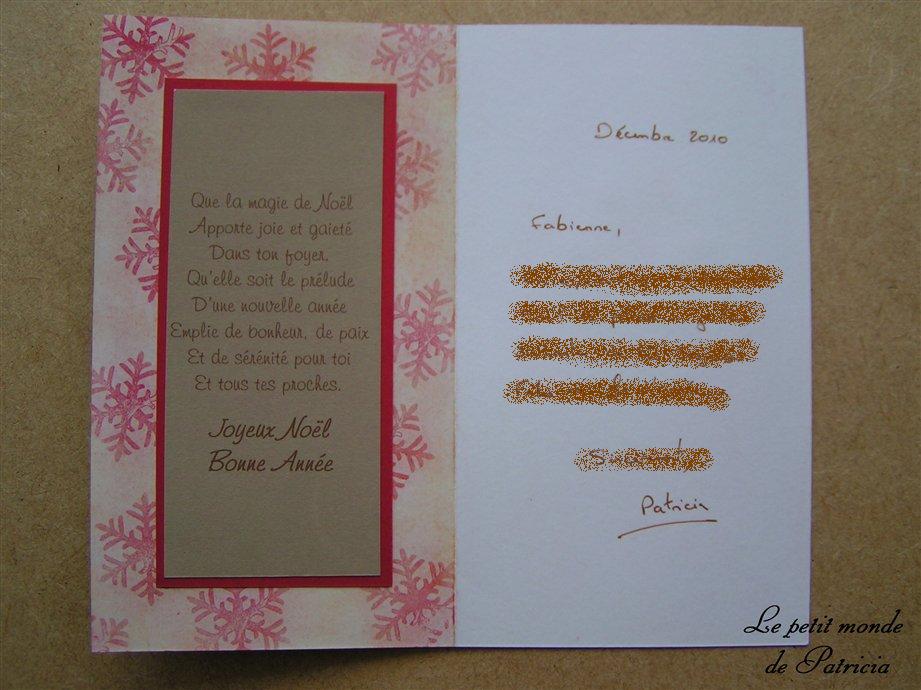 Que la magie de Noël
Apporte joie et gaieté
Dans ton foyer.
Qu'elle soit le prélude
D'une nouvelle année
Emplie de bonheur, de paix
Et de sérénité pour toi
Et tous tes proches.
Joyeux Noël
Bonne Année
Décembre 2010
Fabienne,
Patricia
Le petit monde
de Patricia